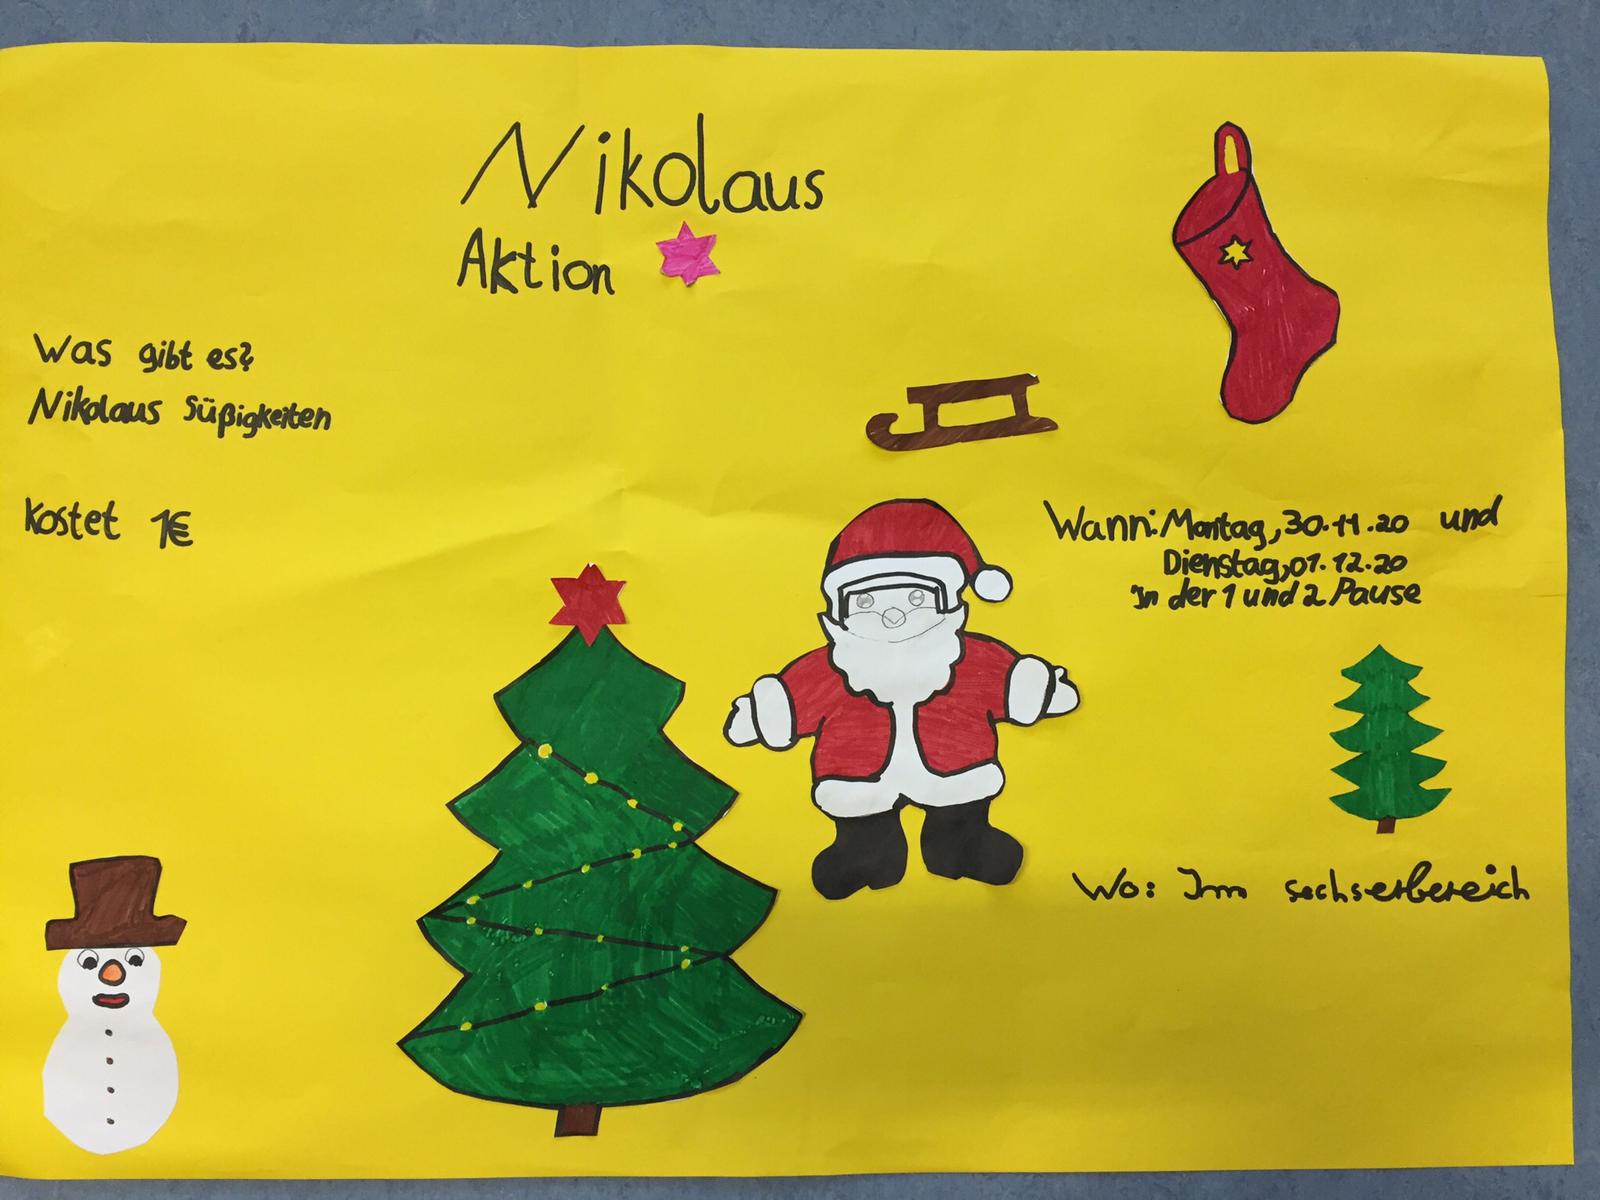 Nikolaus
Aktion
Was gibt es?
Nikolaus Süßigkeiten
Kostet 1€
Wann: Montag, 30.11.20 und
Dienstag, 01.12.20
in der 1 und 2 Pause
Wo: Im sechserbereich